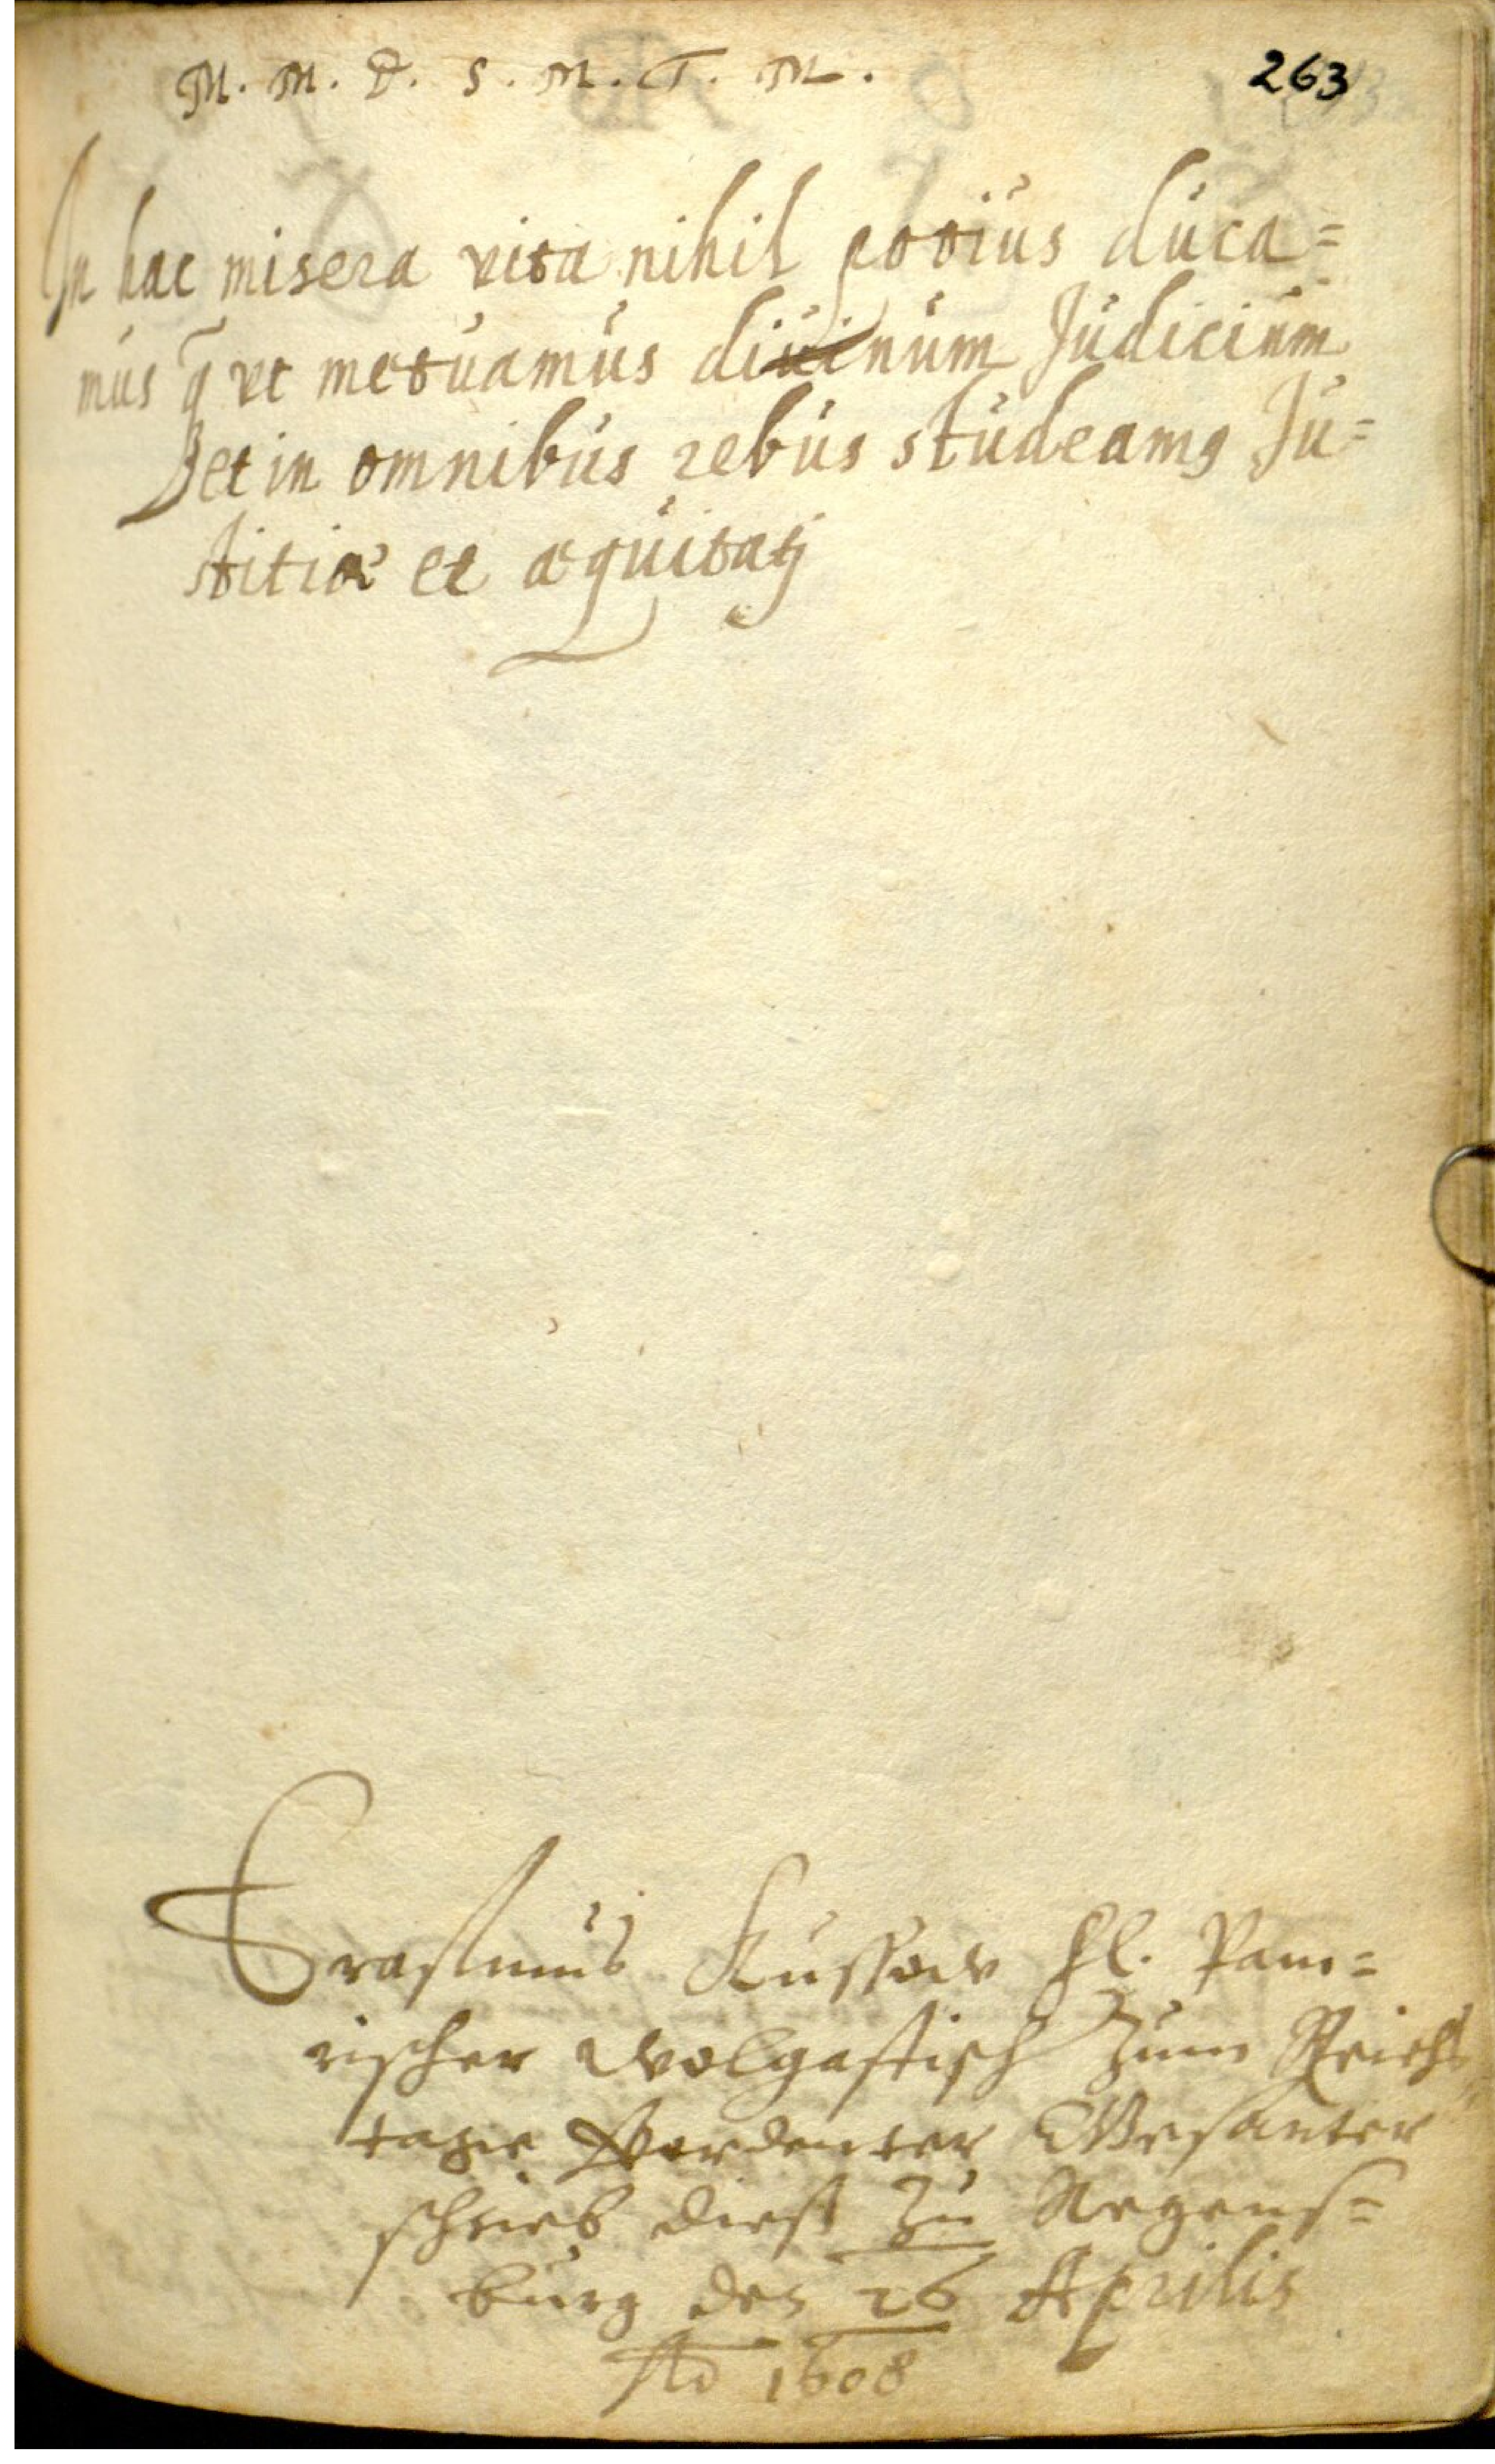 M. M. D. S. M. T. M.
263
In hac misera vita nihil potius duca=
mus q̃ vt metuamus diuinum Judicium
et in omnibus rebus studeamꝰ Ju=
stitiæ et æquitatj
Erasmus Kussow fl. Pom=
rischer Wolgastisch zum Reichs
tage Verordenter Gesanter
schrieb dieß zu Regens=
burg den 26 Aprilis
Ao 1608